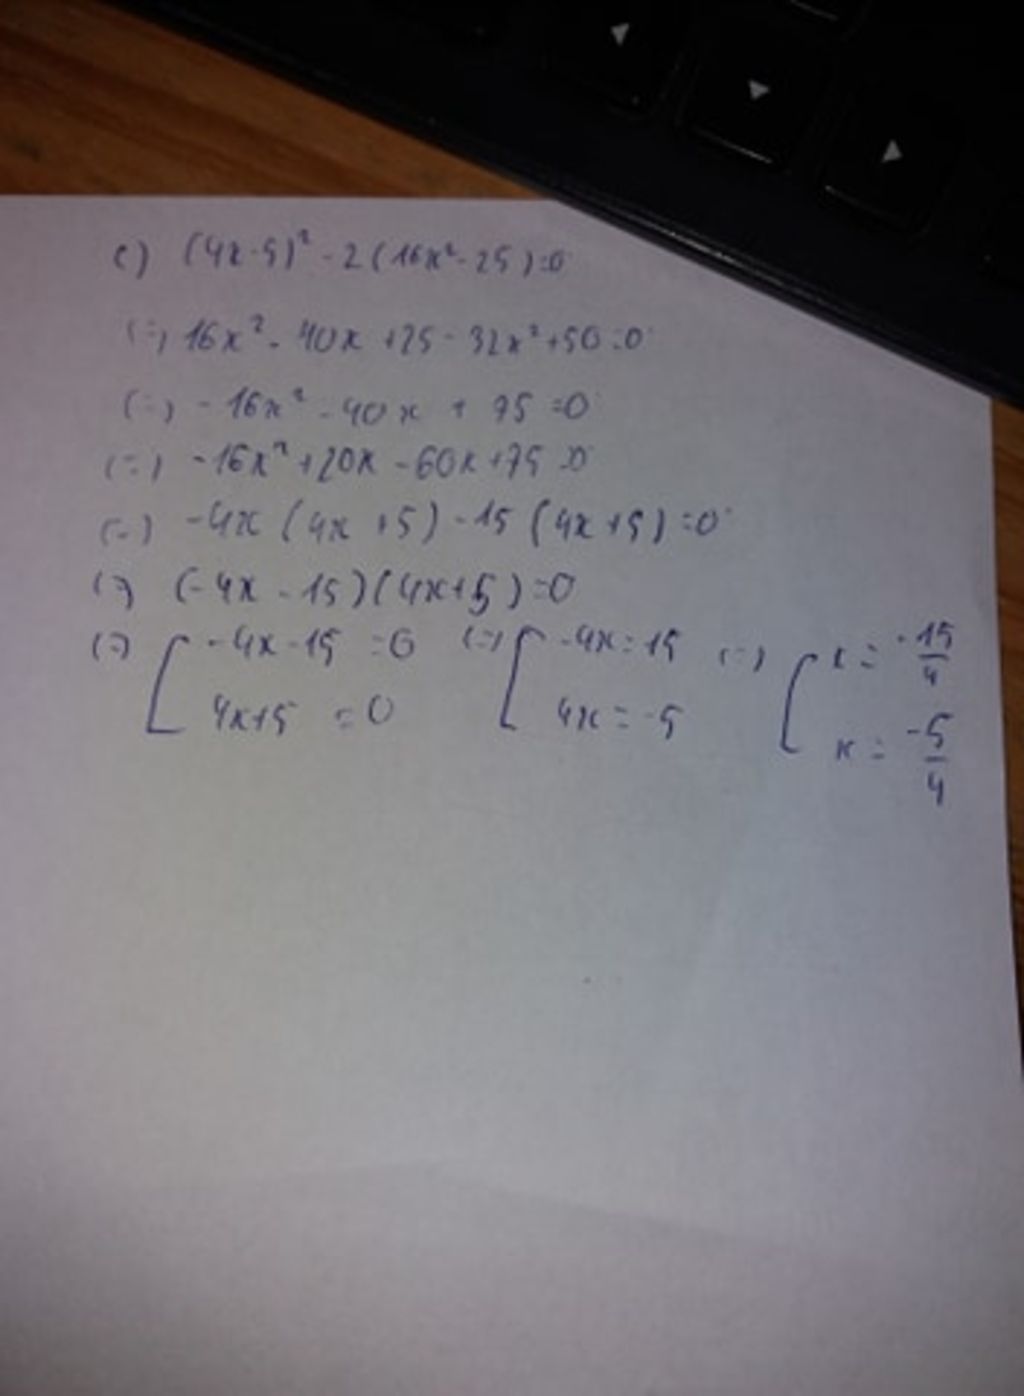 c) (4x-5)² - 2(16x² - 25) = 0
(=) 16x² - 40x + 25 - 32x² + 50 = 0
(=) - 16x² - 40x + 75 = 0
(=) - 16x² + 20x - 60x + 75 = 0
(=) - 4x (4x + 5) - 15 (4x + 5) = 0
(=) (-4x - 15)(4x + 5) = 0
(=) [ -4x - 15 = 0 (=) [ -4x = 15 (=) [ x = -15/4
4x + 5 = 0 4x = -5 x = -5/4